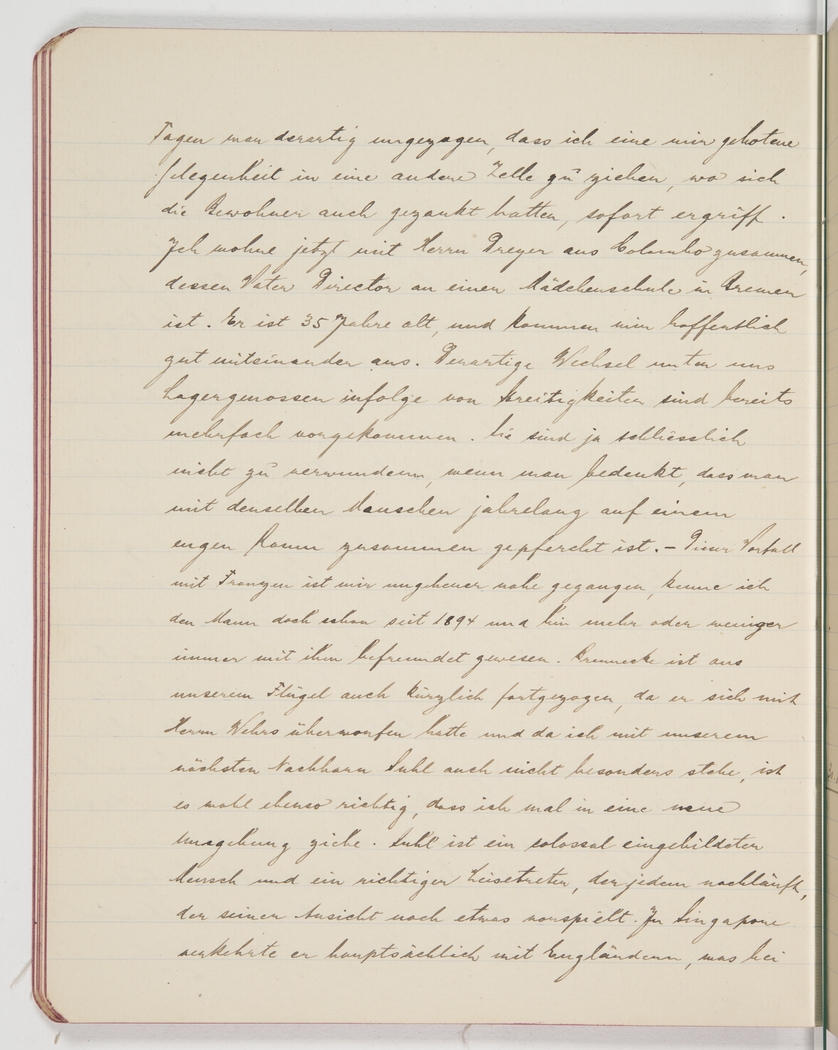 Tagen war derartig ungezogen, dass ich eine mir gebotene
Gelegenheit in eine andere Zelle zu ziehen, wo sich
die Bewohner auch gezankt hatten, sofort ergriff.
Ich wohne jetzt mit Herrn Dreyer aus Colombo zusammen,
dessen Vater Director an einer Mädchenschule in Bremen
ist. Er ist 35 Jahre alt, und kommen wir hoffentlich
gut miteinander aus. Derartige Wechsel unter uns
Lagergenossen infolge von Streitigkeiten sind bereits
mehrfach vorgekommen. Sie sind ja schliesslich
nicht zu verwundern, wenn man bedenkt, dass man
mit denselben Menschen jahrelang auf einem
engen Raum zusammen gepfercht ist. – Dieser Vorfall
mit Franzen ist mir ungeheuer nahe gegangen, kenne ich
den Mann doch schon seit 1894 und bin mehr oder weniger
immer mit ihm befreundet gewesen. Brennecke ist aus
unserem Flügel auch kürzlich fortgezogen, da er sich mit
Herrn Wehrs überworfen hatte und da ich mit unserem
nächsten Nachbarn Suhl auch nicht besonders stehe, ist
es wohl ebenso richtig, dass ich mal in eine neue
Umgebung ziehe. Suhl ist ein colossal eingebildeter
Mensch und ein richtiger Leisetreter, der jedem nachläuft,
der seiner Ansicht nach etwas vorspielt. In Singapore
verkehrte er hauptsächlich mit Engländern, was bei